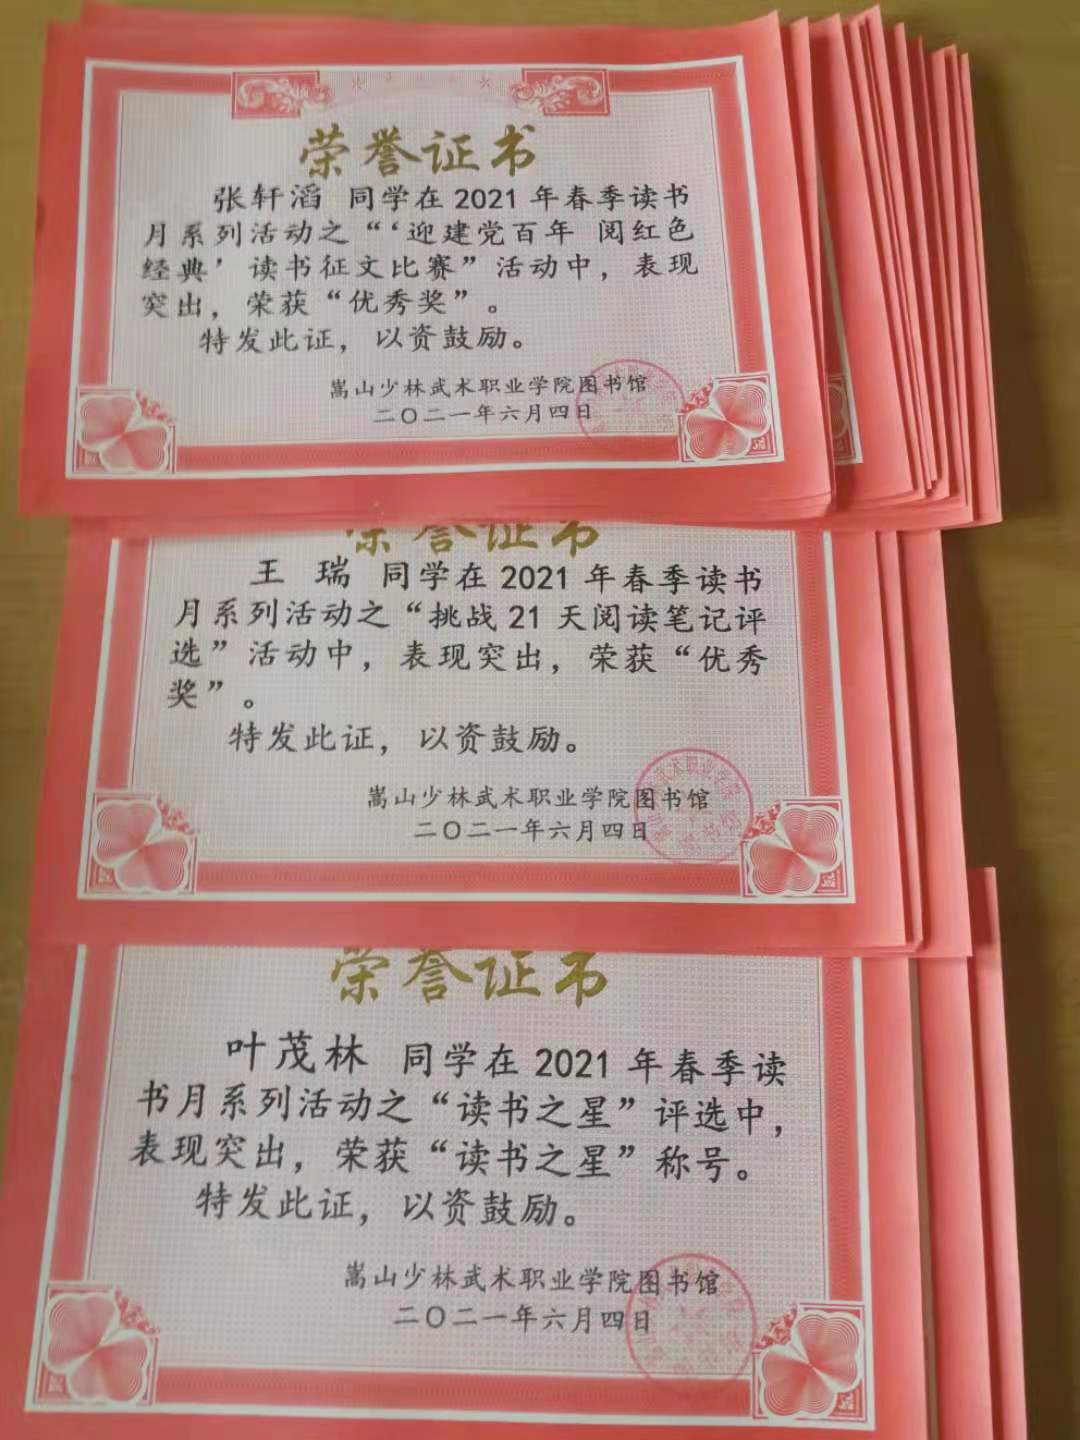 荣誉证书
张轩滔 同学在 2021 年春季读书
月系列活动之“‘迎建党百年 阅红色
经典’读书征文比赛”活动中，表现
突出，荣获“优秀奖”。
特发此证，以资鼓励。
嵩山少林武术职业学院图书馆
二〇二一年六月四日
荣誉证书
王 瑞 同学在 2021 年春季读书
月系列活动之“挑战 21 天阅读笔记评
选”活动中，表现突出，荣获“优秀
奖”。
特发此证，以资鼓励。
嵩山少林武术职业学院图书馆
二〇二一年六月四日
荣誉证书
叶茂林 同学在 2021 年春季读
书月系列活动之“读书之星”评选中，
表现突出，荣获“读书之星”称号。
特发此证，以资鼓励。
嵩山少林武术职业学院图书馆
二〇二一年六月四日